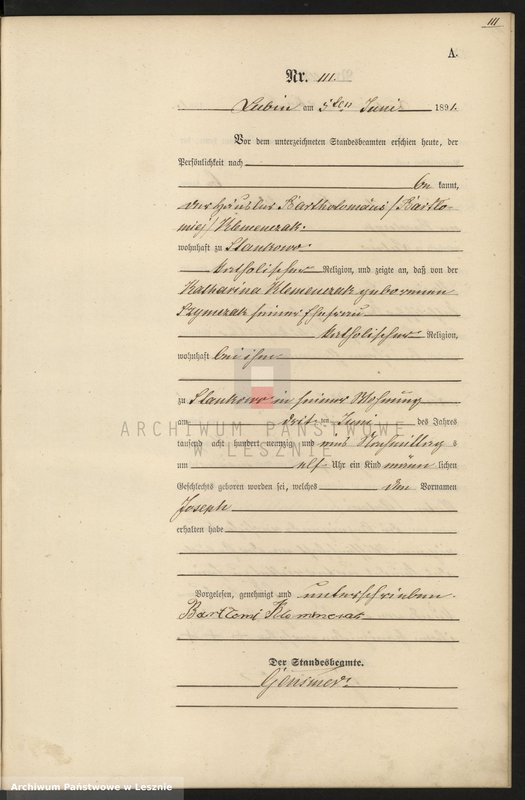 111
A.
Nr. 111.
Lubin am 5ten Juni 1891.
Vor dem unterzeichneten Standesbeamten erschien heute, der
Persönlichkeit nach
be kannt,
der Häusler Bartholomäus / Bartło-
miej / Klemenczak.
wohnhaft zu Stankowo.
katholischer Religion, und zeigte an, daß von der
Katharina Klemenczak geborenen
Szymczak seiner Ehefrau
katholischer Religion,
wohnhaft bei ihm
zu Stankowo in seiner Wohnung
am dritten Juni des Jahres
tausend acht hundert neunzig und eins Vormittag s
um elf Uhr ein Kind männ lichen
Geschlechts geboren worden sei, welches den Vornamen
Joseph
erhalten habe
Vorgelesen, genehmigt und unterschrieben.
Der Standesbeamte.
ARCHIWUM PAŃSTWOWE
W LESZNIE
Archiwum Państwowe w Lesznie